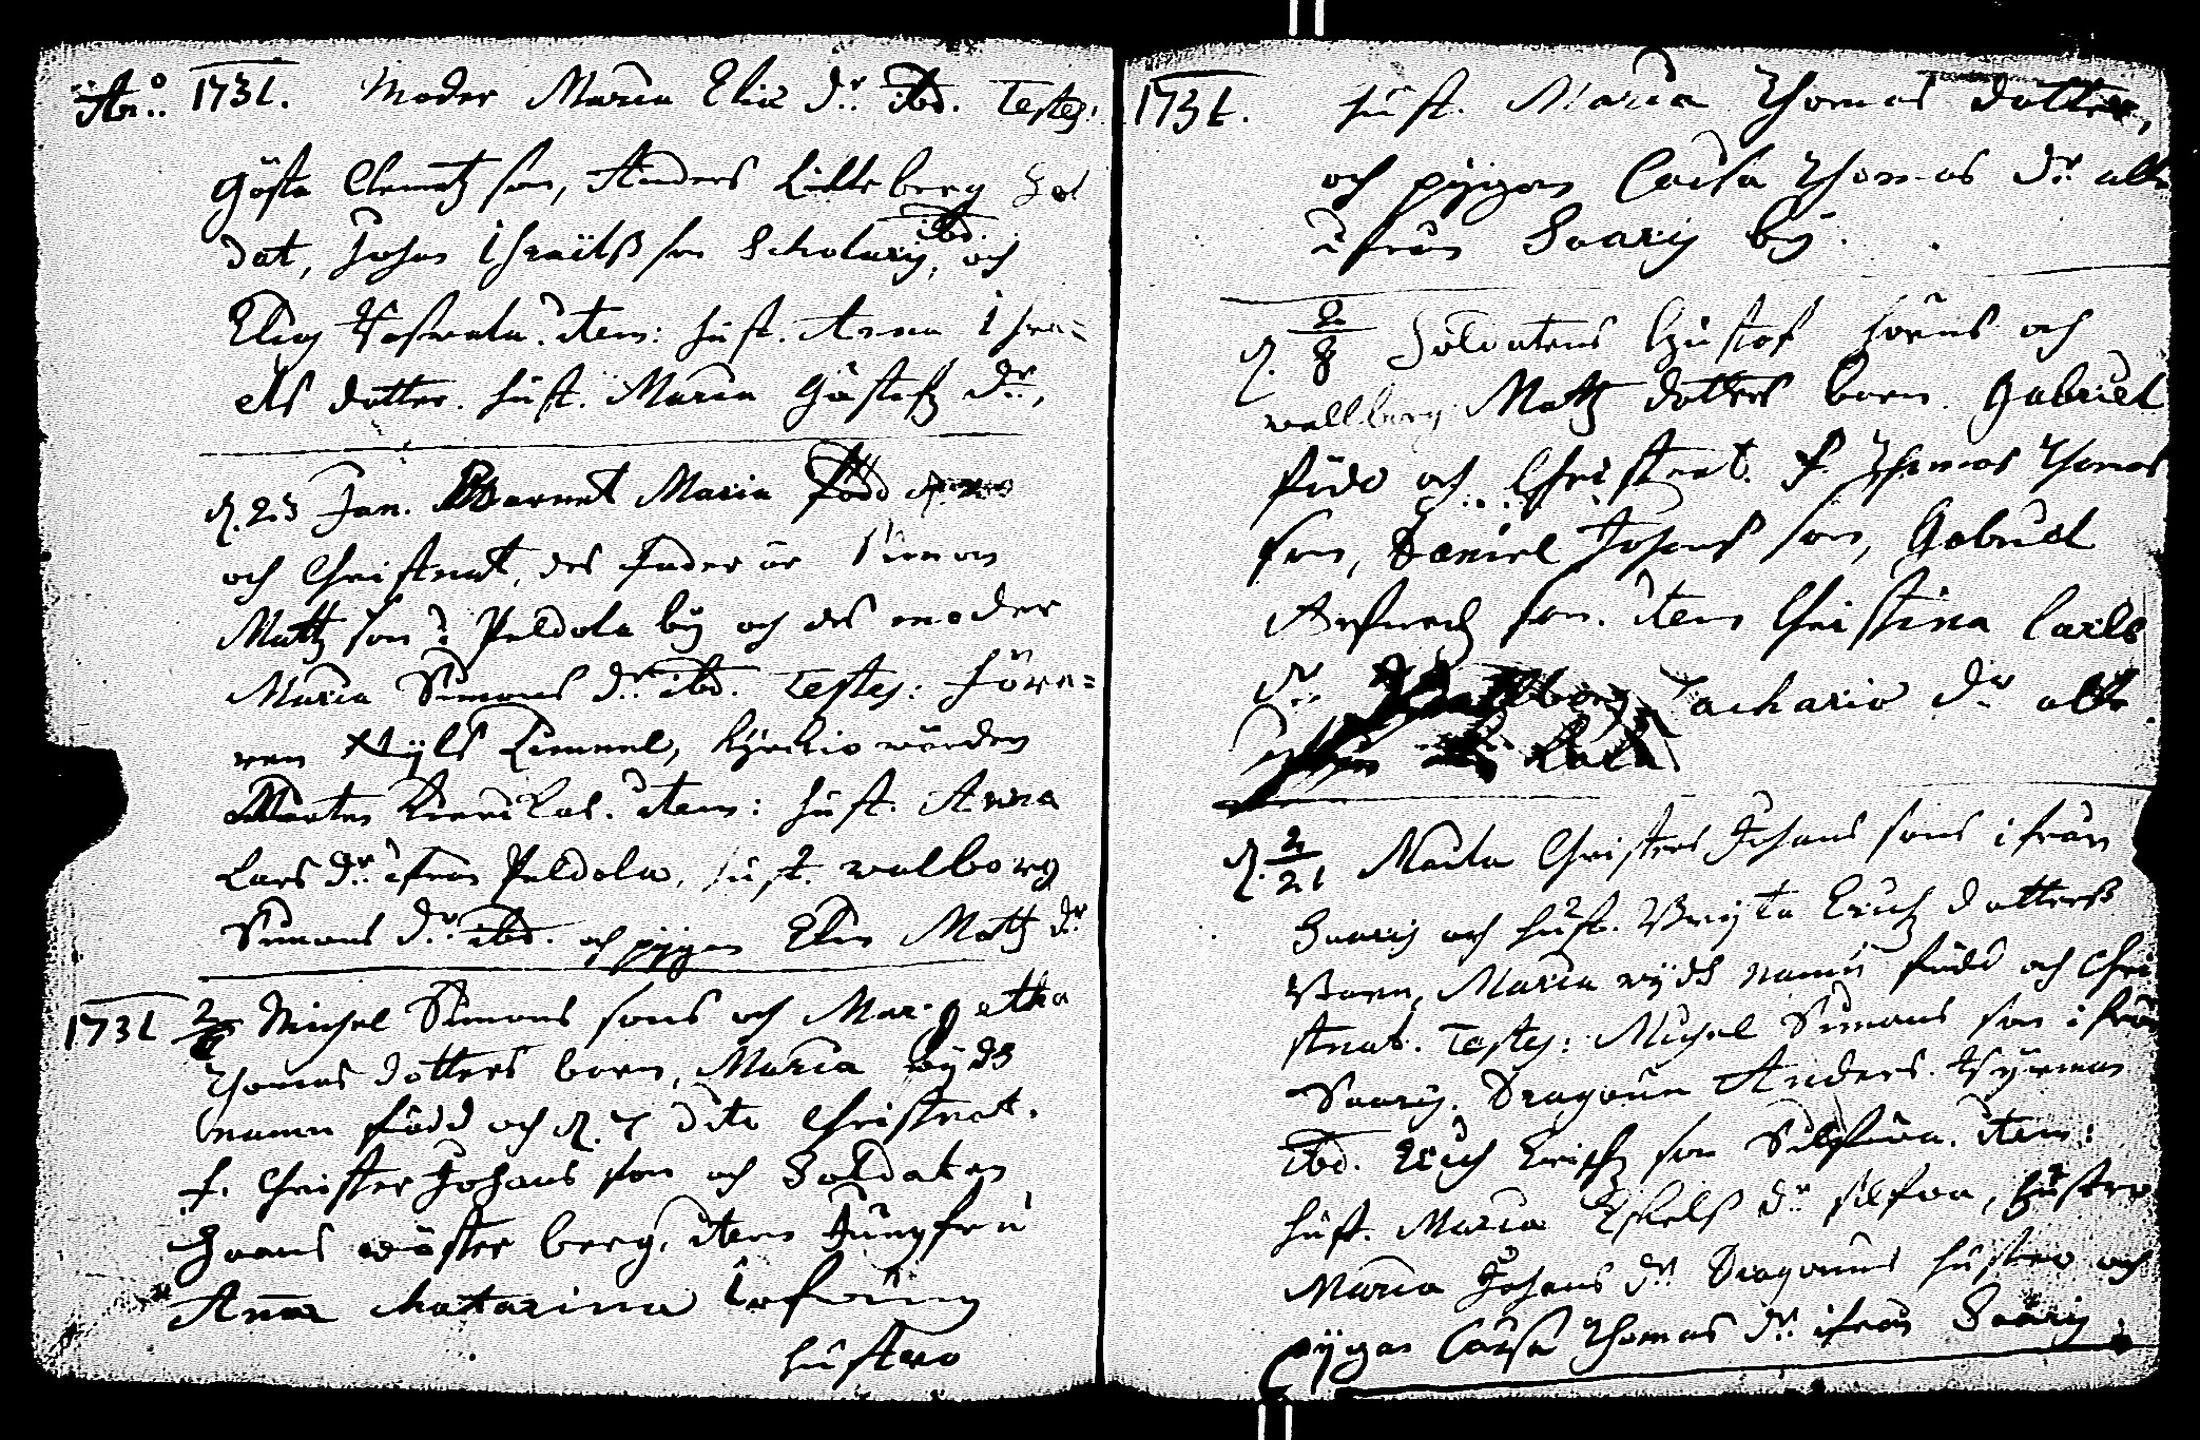 An:o 1731. Moder Maria Eliæ d:r ibd. Testes:
Gösta Clemetz son, Anders Lilleberg Sol
dat, Johan Israelß son Scholaris, ibd. och
Elias item: hust. Anna Isra=
els dotter. hust. Maria Göstafz d:r,
d. 23 Jan. Barnet Maria född
och Christnat, des Fader är Simon
Mattz son i Peldola by och des moder
Maria Simons d:r ibd. Testes: Före=
ren Nyls Limmel, Kyrkio wärden
Mårten item: hust. Anna
Lars d:r ifrån Peldola, hust. walborg
Simons d:r ibd. och pigan Elin Mattz d:r
1731 2 Michel Simons sons och Margetha
Thomas dotters barn, Maria wyds
namn född och d. 7 dito Christnat.
f. Christer Johans son och Soldaten
wästerberg, item Jungfru
Anna Catarina
hustro
1731. hust. Maria Thomas dotter,
och pygan Caisa Thomas d:r alla
ifrån Saaris by.
d. 2/8 Soldatens Gustof och
wallborg Mattz dotters barn. Gabriel
född och Christnat. f. Thomas Thomas
son, Daniel Johans son, Gabriel
son. item Christina Carls
d:r Zachariæ d:r alle
d. 2/21 Matla Christers Johans sons ifrån
Saaris och hust. Bryta Erichz dotters
Barn, Maria wyds namn född och Chri
stnat. Testes: Michel Simons son ifrån
Saaris. Dragoun Anders
ibd. Erich Erichz son item:
hust. Maria Eskels d:r hustro
Maria Johans d:r Dragouns hustro och
pygan Caisa Thomas d:r ifrån Saaris.